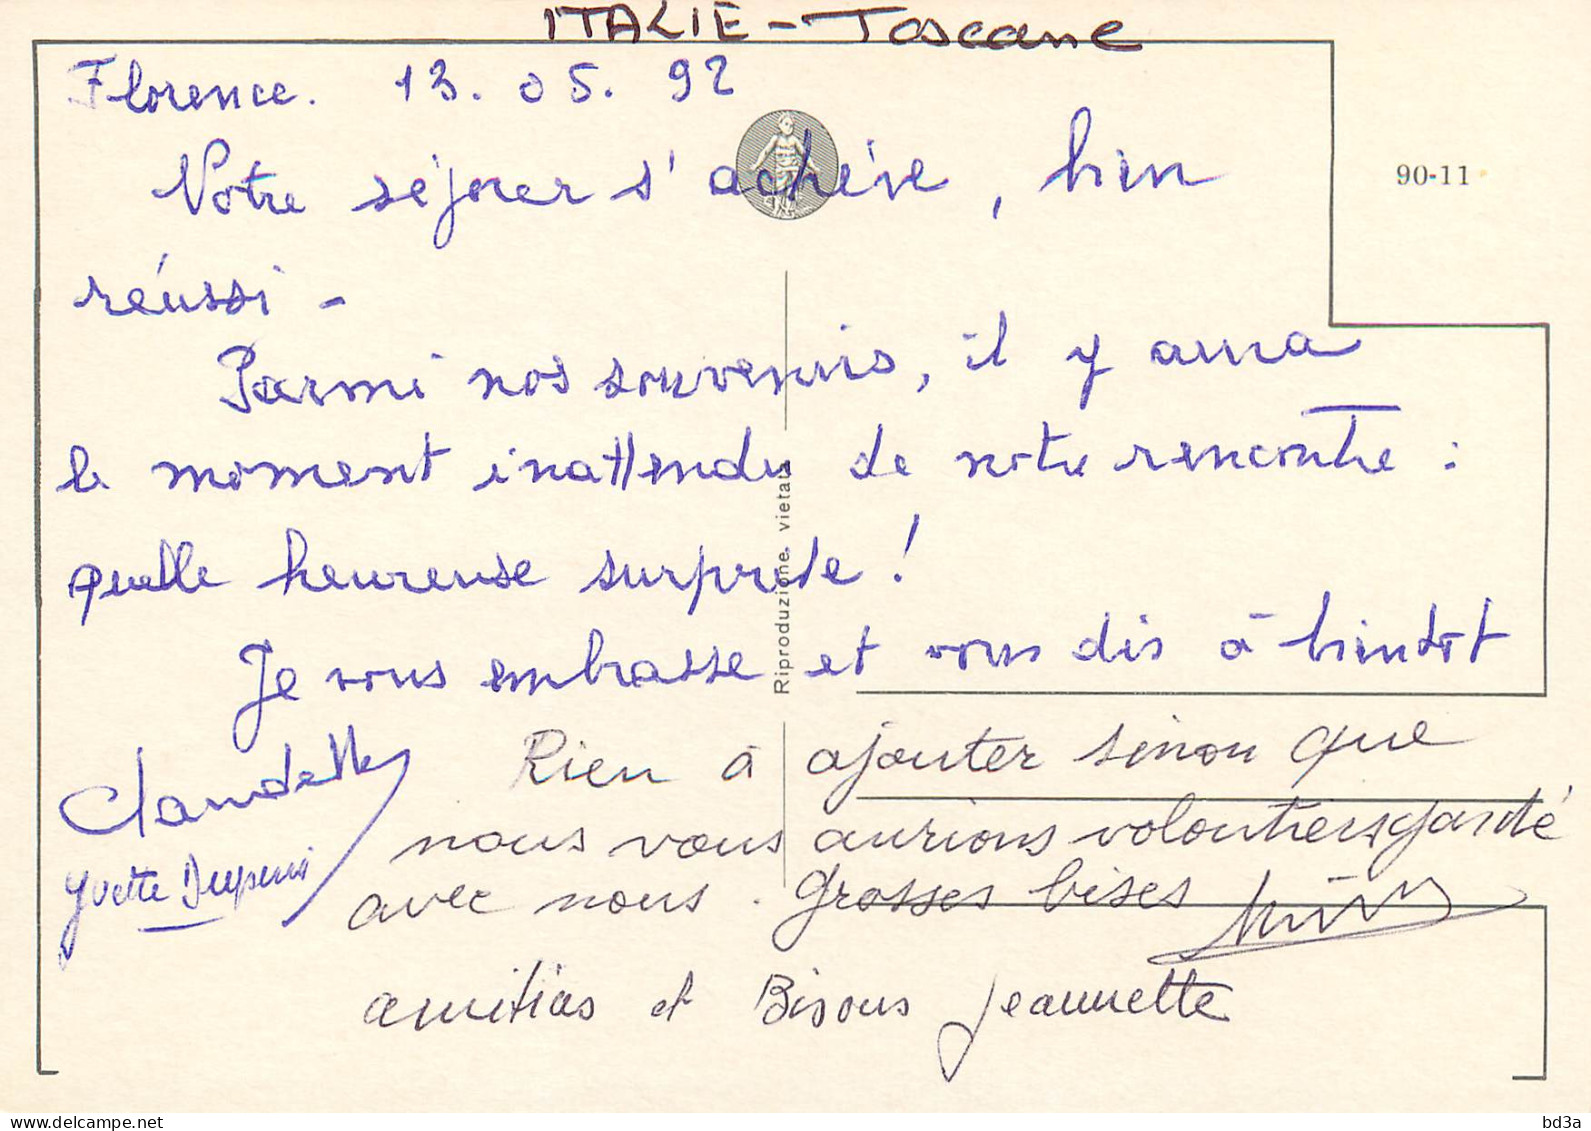 ITALIE - Toscane
Florence. 13. 05. 92
90-11
Notre séjour s'achève, bien
réussi -
Parmi nos souvenirs, il y aura
le moment inattendu de notre rencontre :
quelle heureuse surprise !
Je vous embrasse et vous dis à bientôt
Claudette
Yvette Dupuis
Rien à ajouter sinon que
nous vous aurions volontiers gardé
avec nous. Grosses bises
amitiés et Bisous Jeannette
Riproduzione vietata
bd3a